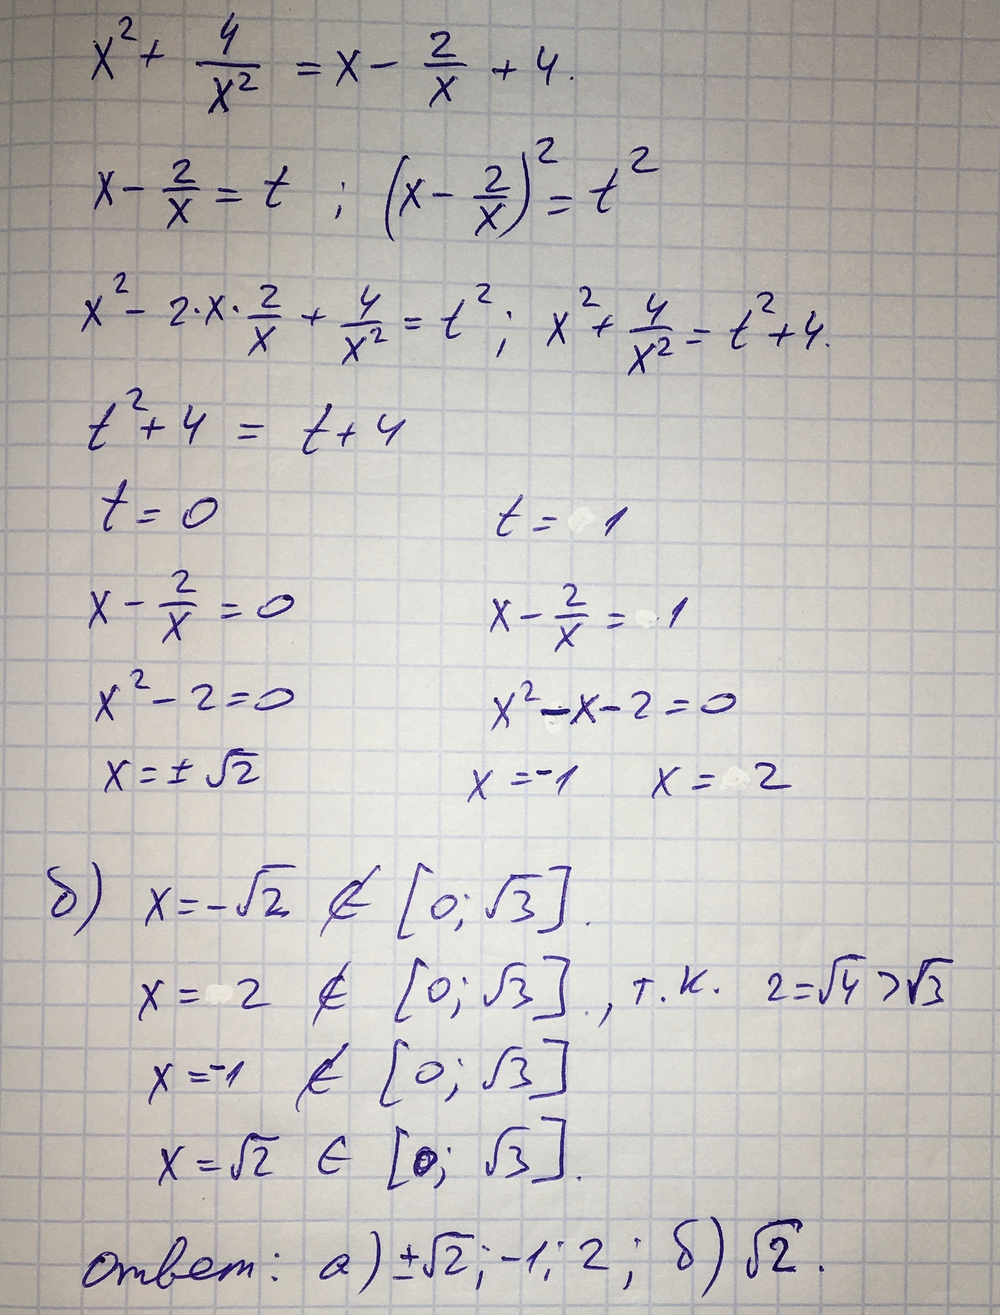 x² + 4/x² = x - 2/x + 4.
x - 2/x = t ; (x - 2/x)² = t²
x² - 2·x·2/x + 4/x² = t²; x² + 4/x² = t² + 4.
t² + 4 = t + 4
t = 0 t = 1
x - 2/x = 0 x - 2/x = 1
x² - 2 = 0 x² - x - 2 = 0
x = ± √2 x = -1 x = 2
б) x = -√2 ∉ [0; √3].
x = 2 ∉ [0; √3]., т.к. 2 = √4 > √3
x = -1 ∉ [0; √3]
x = √2 ∈ [0; √3].
ответ: а) ±√2; -1; 2; б) √2.